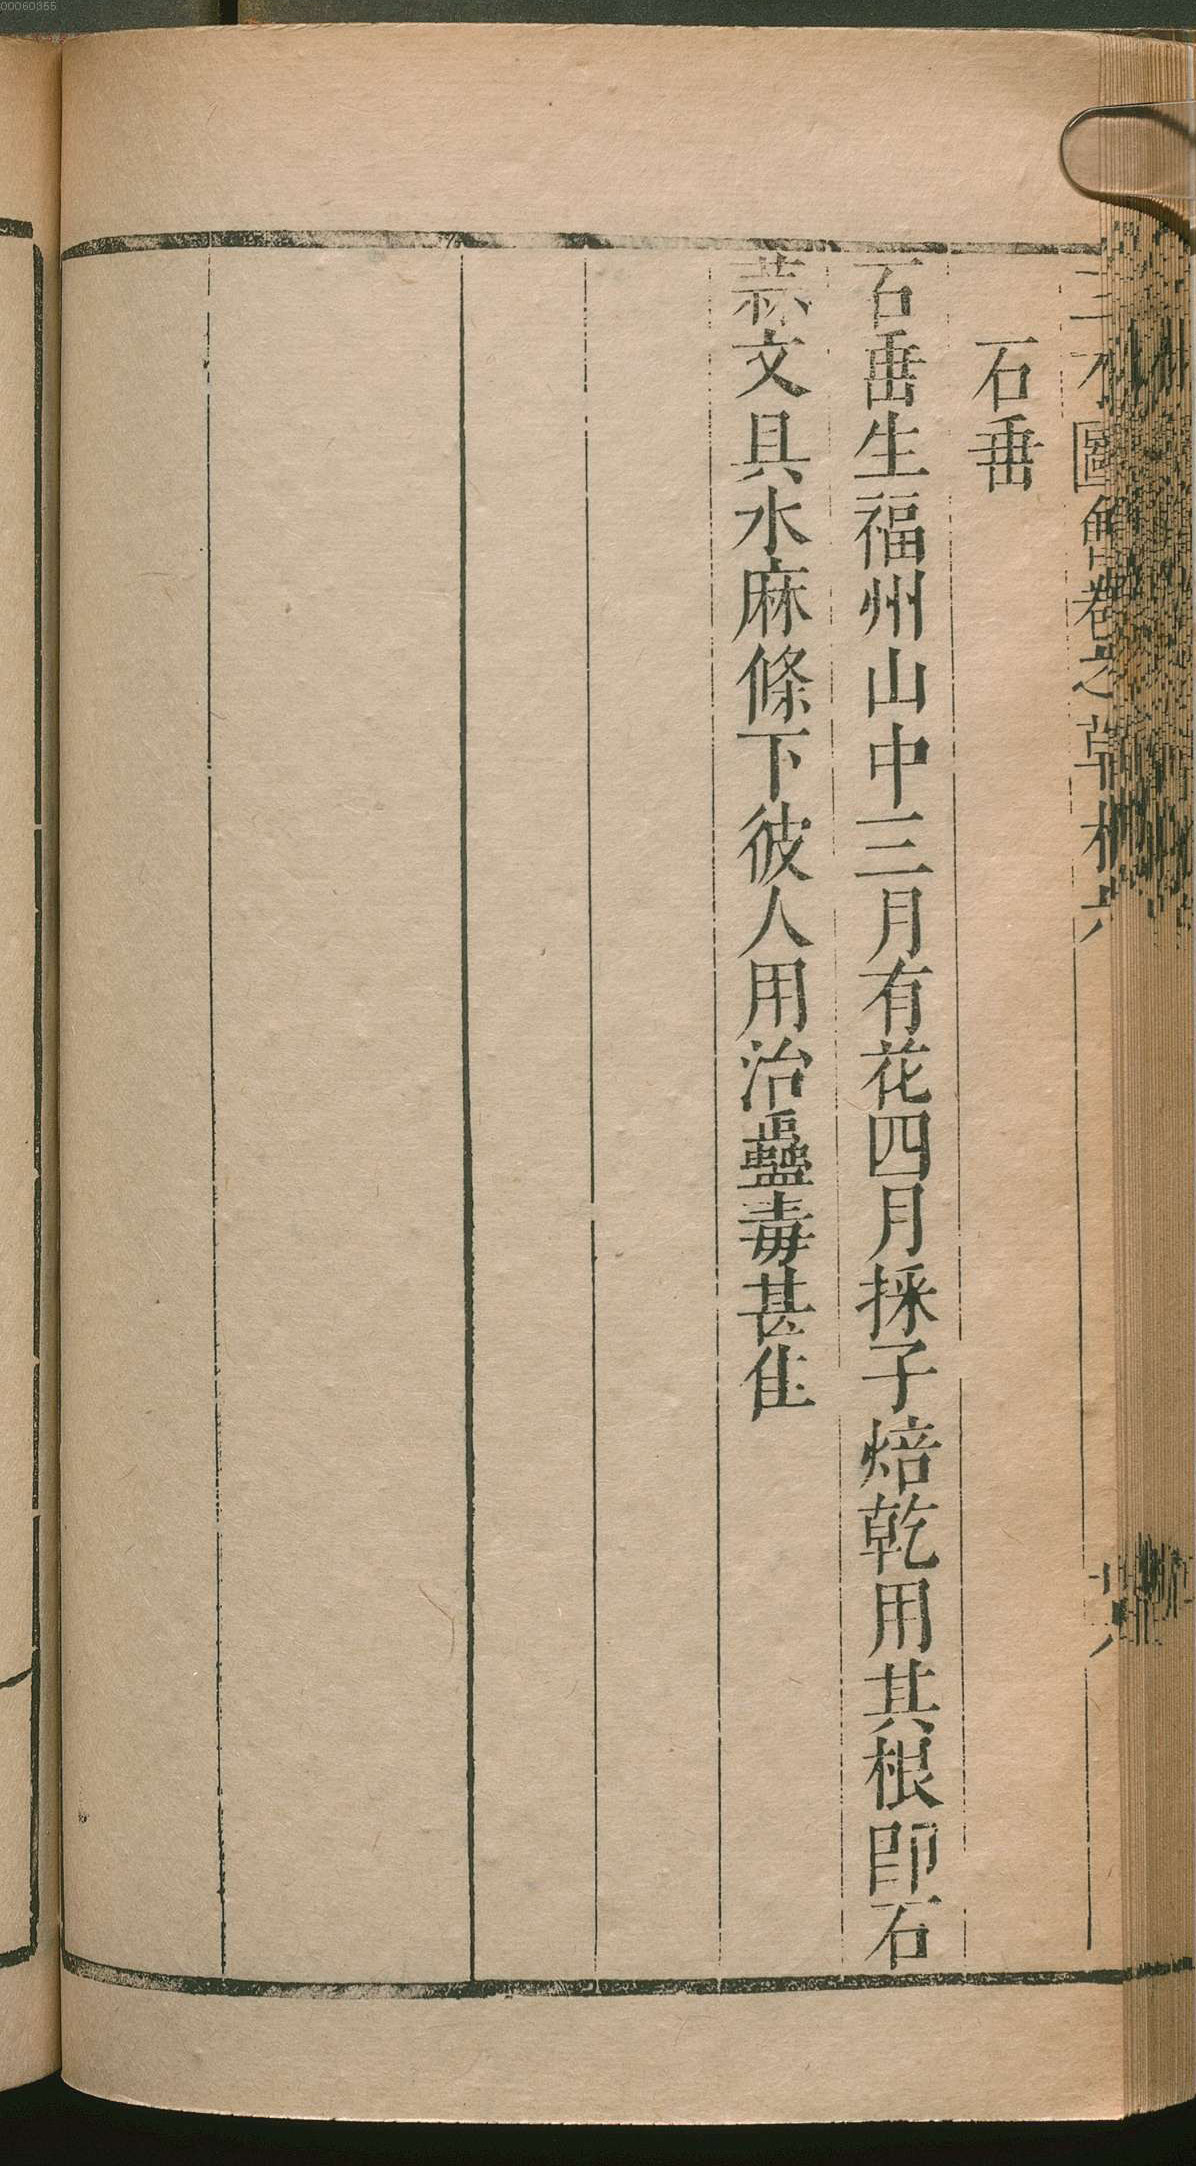 00060355
三才圖會卷之草木六
石垂
石垂生福州山中三月有花四月採子焙乾用其根即石
蒜文具水麻條下彼人用治蠱毒甚佳